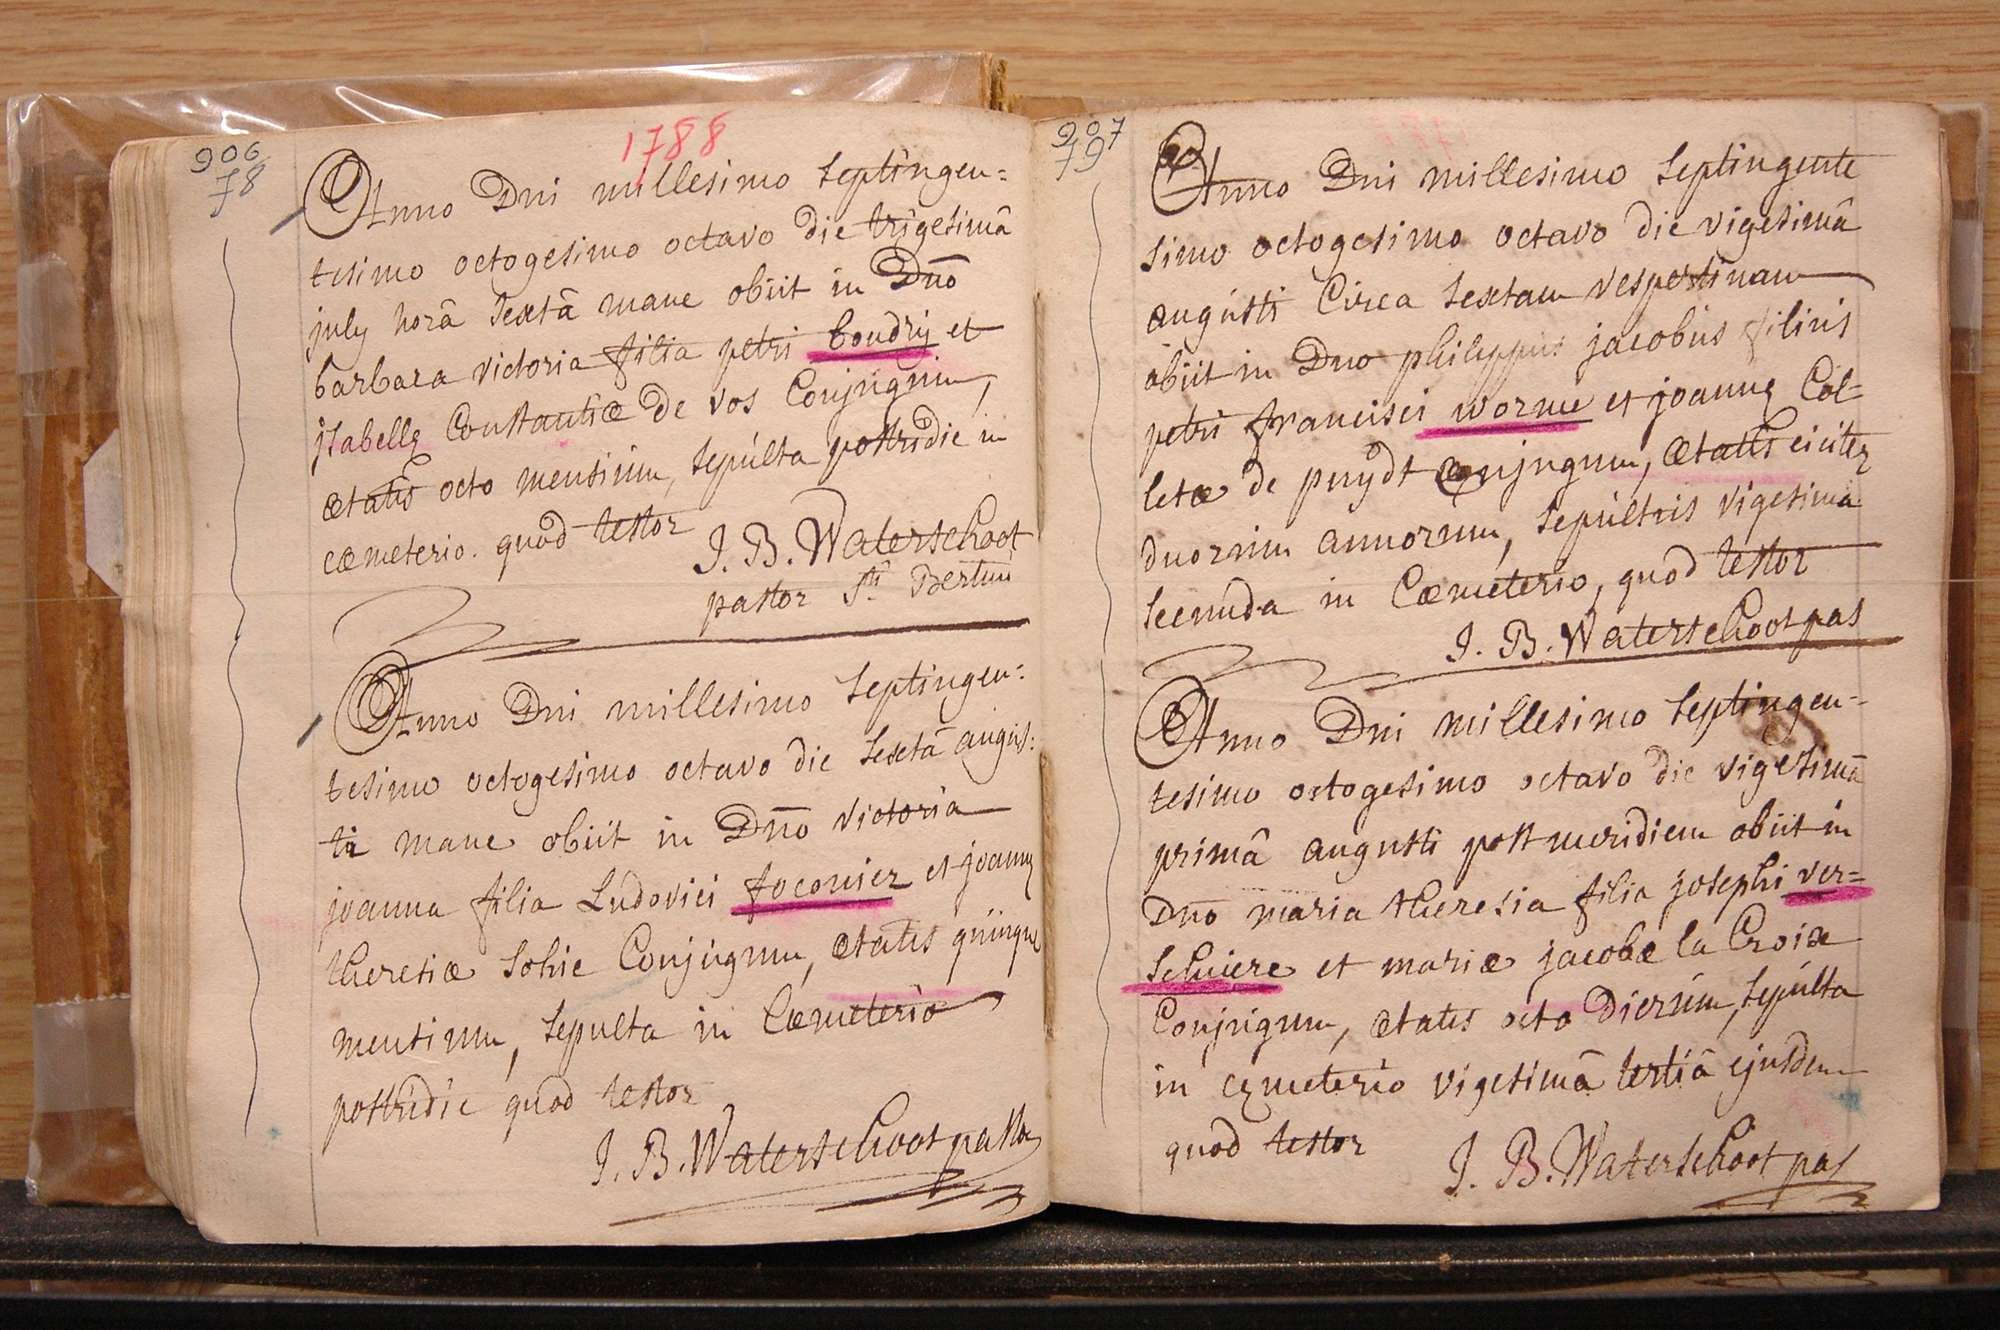 906
78
1788
Anno Dni millesimo septingen=
tesimo octogesimo octavo die trigesimâ
july horâ sextâ mane obiit in Dño
barbara victoria filia petri boudry et
jsabellę Constantiæ de vos Conjugum,
ætatis octo mensium, sepúlta postridie in
cæmeterio. quod testor
J. B. Waterschoot
pastor Sti Bertini
Anno Dni millesimo septingen=
tesimo octogesimo octavo die sextâ augus:
ti mane obiit in Dño victoria
joanna filia Ludovici foconier et joannę
theresiæ sohie Conjugum, ætatis quinque
mensium, sepulta in Cæmeterio
postridie quod testor
J. B. Waterschoot pastor
907
79
Anno Dni millesimo septingente
simo octogesimo octavo die vigesimâ
augusti Circa sextam vespertinam
obiit in Dno philippus jacobus filius
petri francisci worme et joannę Col=
letæ de puydt Conjugum, ætatis eiciter
duorum annorum, sepultus vigesima
secunda in Cæmeterio, quod testor
J. B. Waterschoot pas
Anno Dni millesimo septingen=
tesimo octogesimo octavo die vigesimâ
primâ augusti post meridiem obiit in
Dno maria theresia filia josephi ver=
schuere et mariæ jacobæ la Croix
Conjugum, ætatis octo Dierum, sepúlta
in cęmeterio vigesimâ tertiâ ejusdem
quod testor
J. B. Waterschoot pas